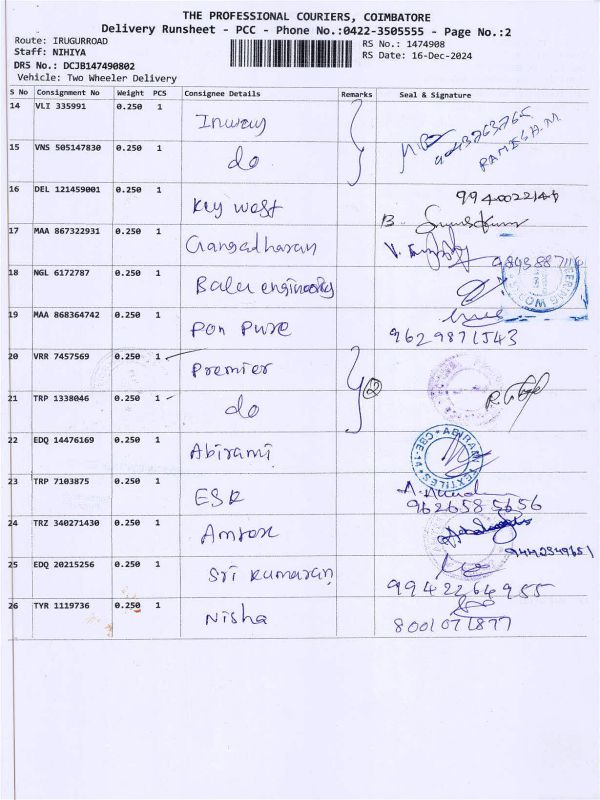 THE PROFESSIONAL COURIERS, COIMBATORE
Delivery Runsheet - PCC - Phone No.:0422-3505555 - Page No.:2
Route: IRUGURROAD
RS No.: 1474908
Staff: NIHIYA
RS Date: 16-Dec-2024
DRS No.: DCJB147490802
Vehicle: Two Wheeler Delivery
S No Consignment No Weight PCS Consignee Details Remarks Seal & Signature
14 VLI 335991 0.250 1 Inway
15 VNS 505147830 0.250 1 do RAMESH.M
16 DEL 121459001 0.250 1 Key West
17 MAA 867322931 0.250 1 Gangadharan
18 NGL 6172787 0.250 1 Balu engineering
19 MAA 868364742 0.250 1 Pon Pure 9629871543
20 VRR 7457569 0.250 1 Premier
21 TRP 1338046 0.250 1 do 2
22 EDQ 14476169 0.250 1 Abirami ABIRAMI TEXTILES CBE-14
23 TRP 7103875 0.250 1 ESR 9626585656
24 TRZ 340271430 0.250 1 Amrox
25 EDQ 20215256 0.250 1 Sri Kumaran 9942264955
26 TYR 1119736 0.250 1 Nisha 8001071877